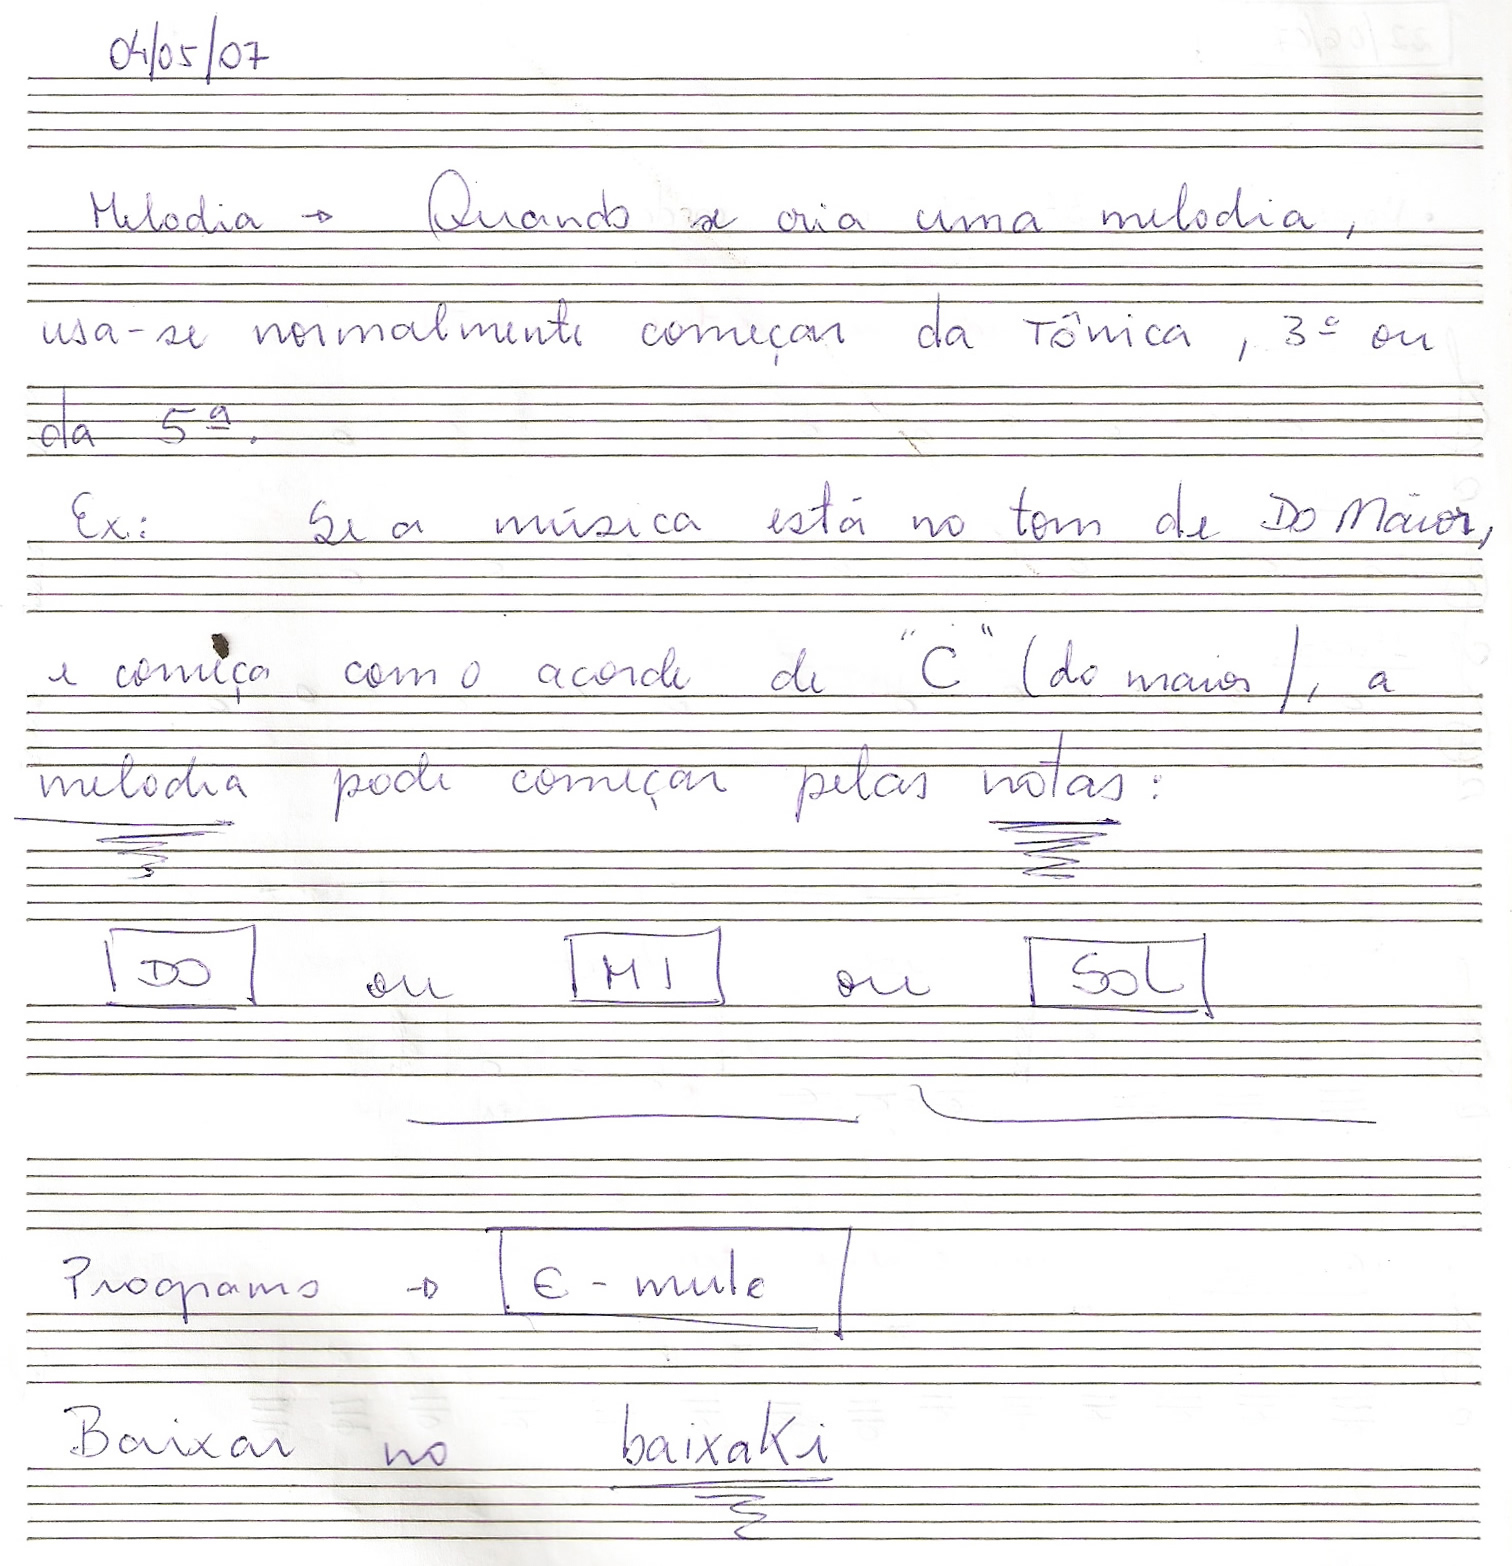 04/05/07
Melodia → Quando se cria uma melodia,
usa-se normalmente começar da Tônica, 3ª ou
da 5ª.
Ex.: Se a música está no tom de DO Maior,
e começa com o acorde de "C" (do maior), a
melodia pode começar pelas notas:
DO ou MI ou SOL
Programa → E-mule
Baixar no baixaKi